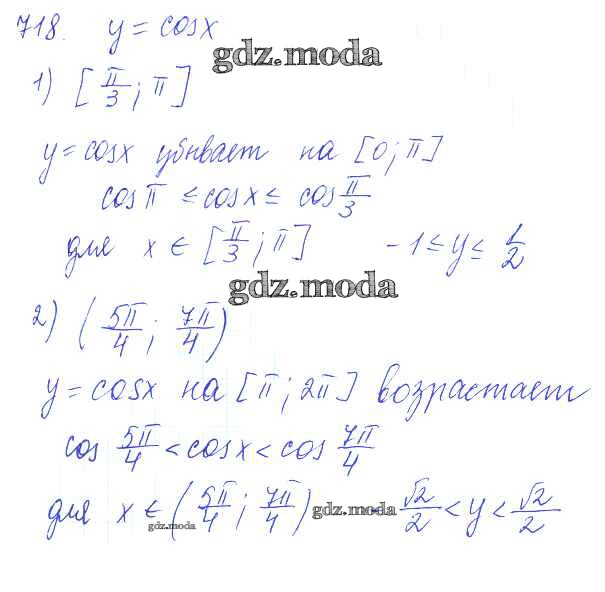 718. y = cosx
gdz.moda
1) [π/3; π]
y = cosx убывает на [0; π]
cos π ≤ cosx ≤ cos π/3
для x ∈ [π/3; π] -1 ≤ y ≤ 1/2
gdz.moda
2) (5π/4; 7π/4)
y = cosx на [π; 2π] возрастает
cos 5π/4 < cosx < cos 7π/4
для x ∈ (5π/4; 7π/4) - √2/2 < y < √2/2
gdz.moda gdz.moda